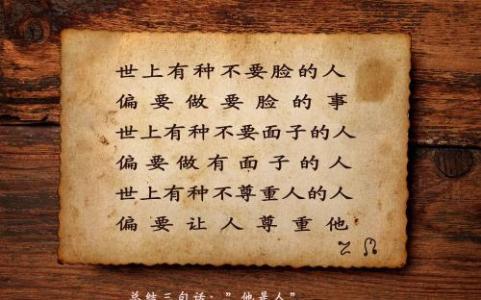 世上有种不要脸的人
偏要做要脸的事
世上有种不要面子的人
偏要做有面子的人
世上有种不尊重人的人
偏要让人尊重他
总结三句话："他是人"